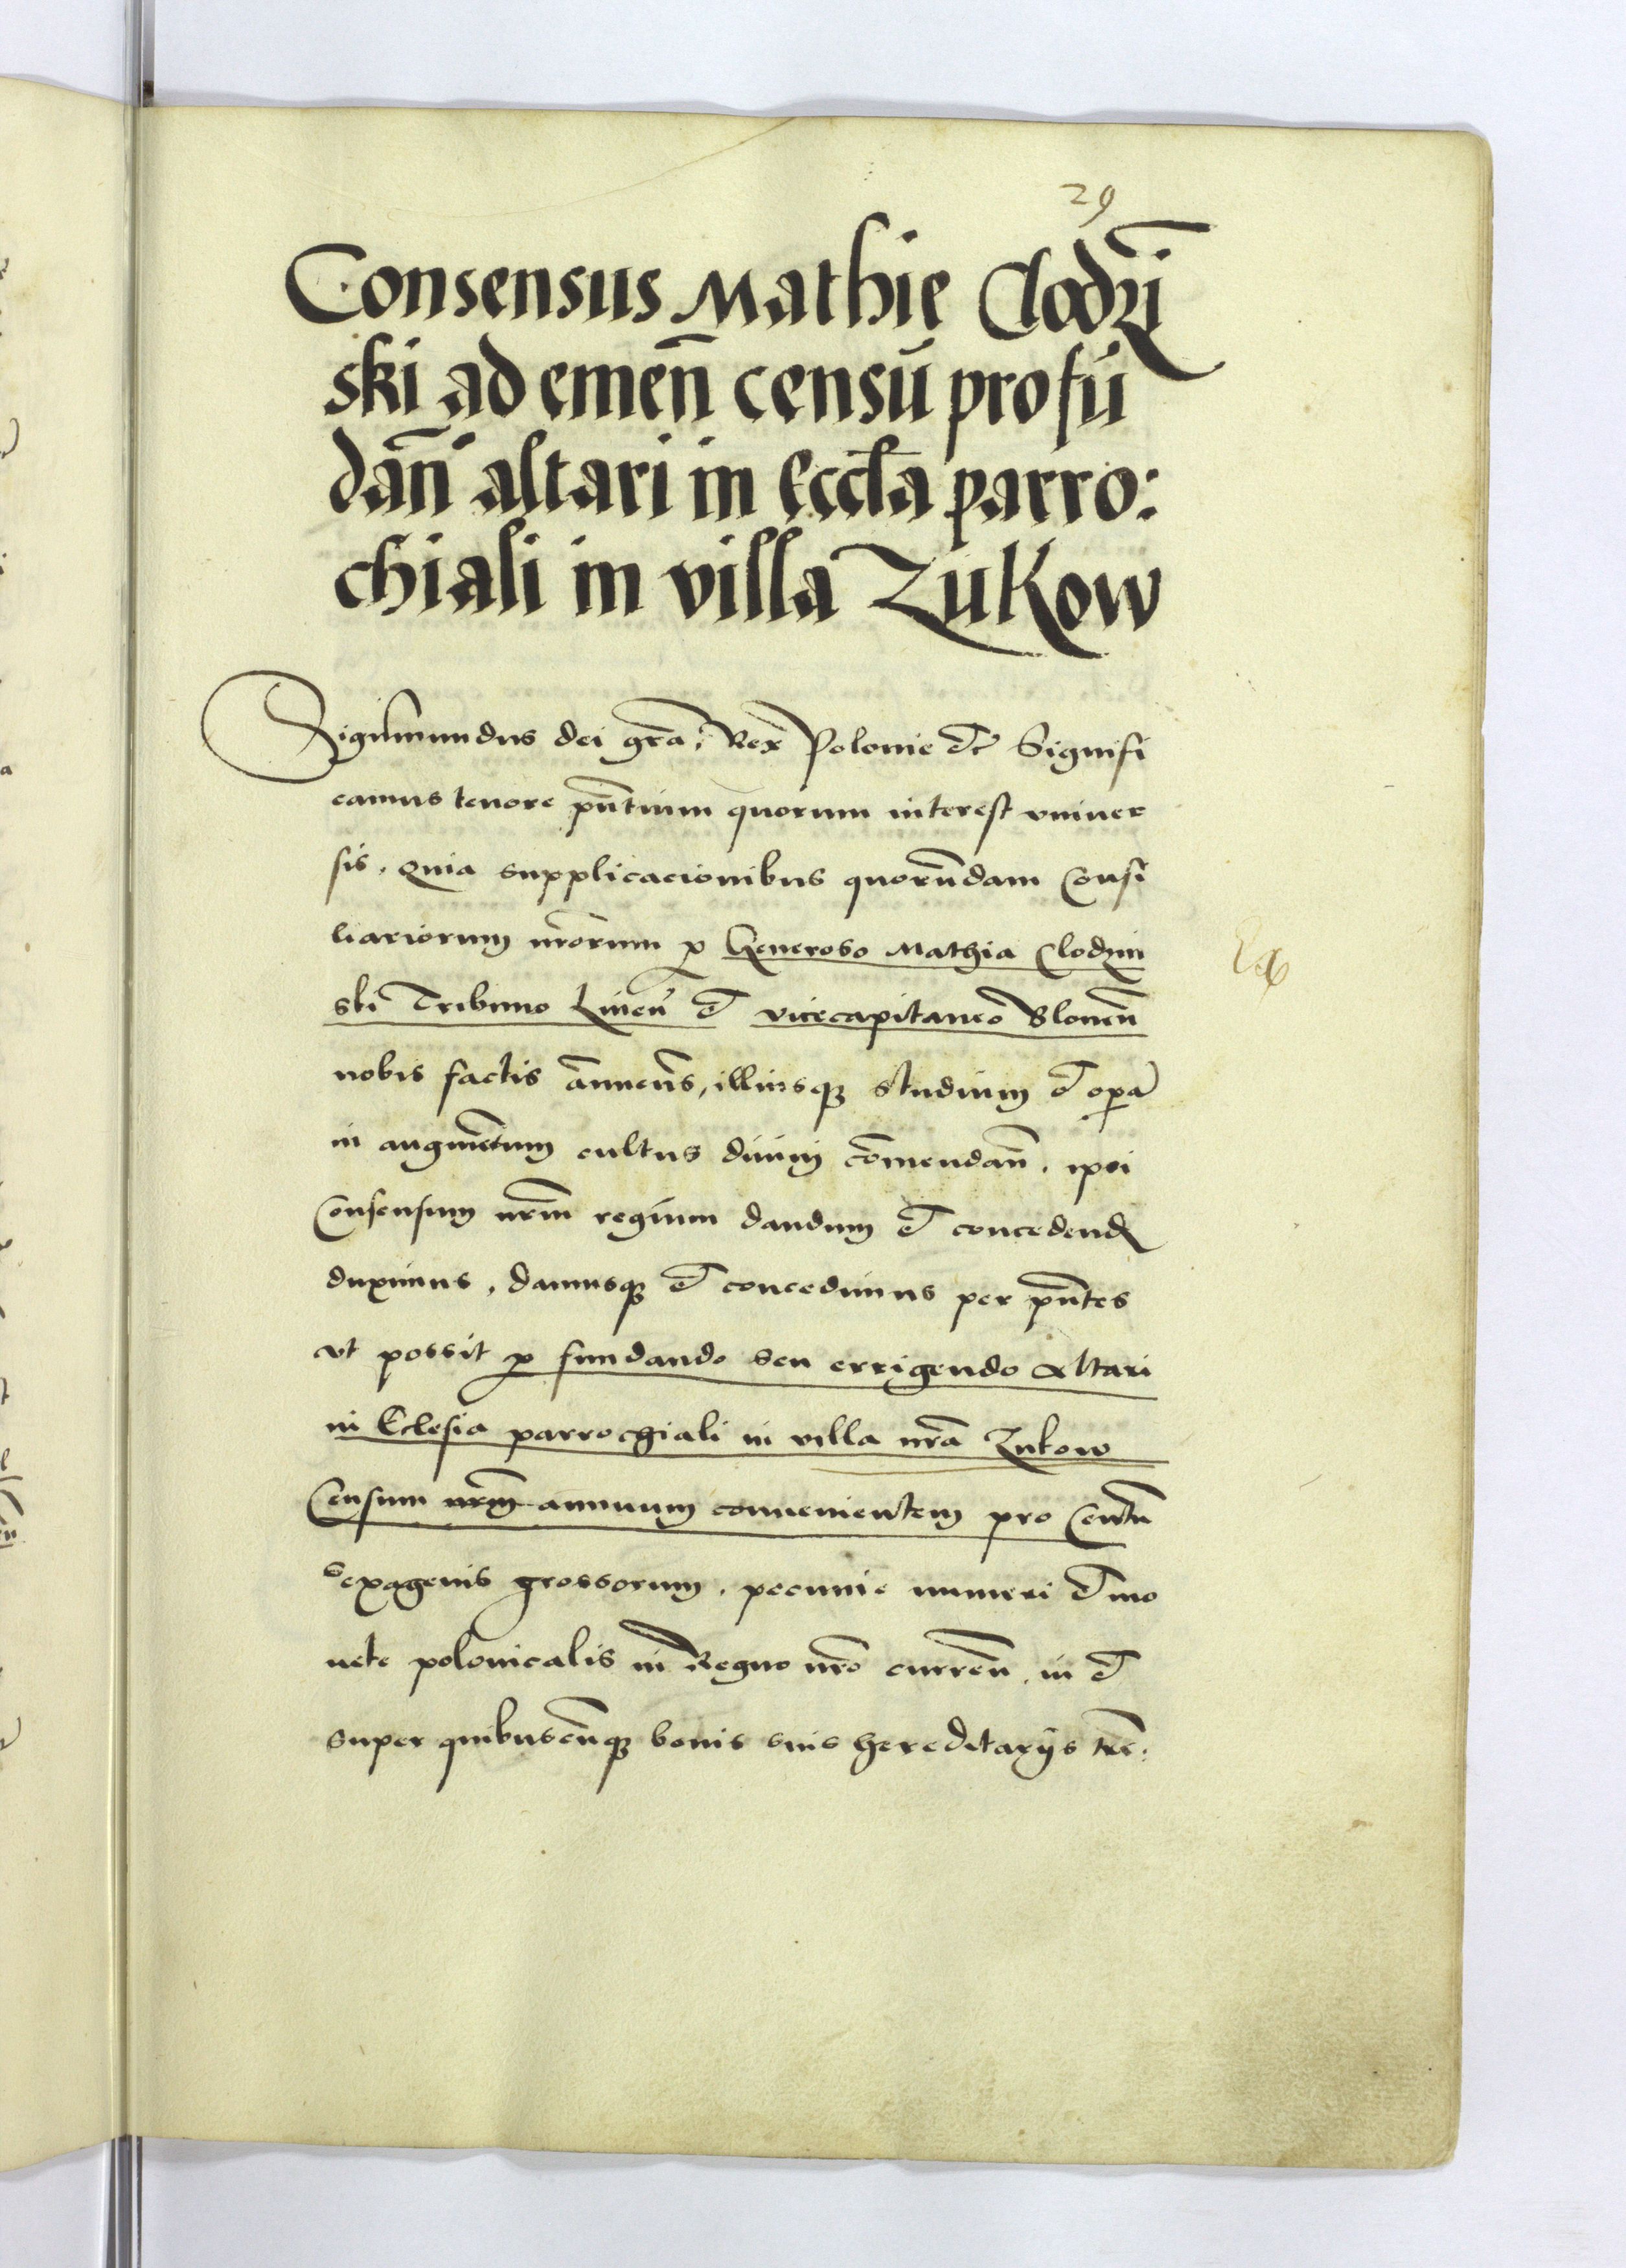 29
Consensus Mathie Clodzī
ski ad emen̄ censū pro fū
dan̄ altari in Eccl̄a parro:
chiali in villa Zukow
Sigismundus dei gr̄a, Rex Polonie etc̄ Signifi
camus tenore pn̄tium quorum interest vniuer
sis, Quia supplicacionibus quorūdam Consi
liariorum nr̄orum p Generoso Mathia Clodzin
ski Tribuno Linen̄ et vicecapitaneo Blonen̄
nobis factis ānuen̄s, illiusq studium et operā
in augmētum cultus diuini cōmendan̄, ipsi
Consensum nr̄m regium dandum et concedend
duximus, damusq et concedimus per pn̄tes
vt possit p fundando seu errigendo Altari
in Eclesia parrochiali in villa nr̄a Zukow
Censum nr̄m annuum conuenientem pro Centū
Sexagenis grossorum, pecunie numeri et mo
nete polonicalis in Regno nr̄o curren̄, in et
super quibuscūq bonis suis hereditarijs terr̄: